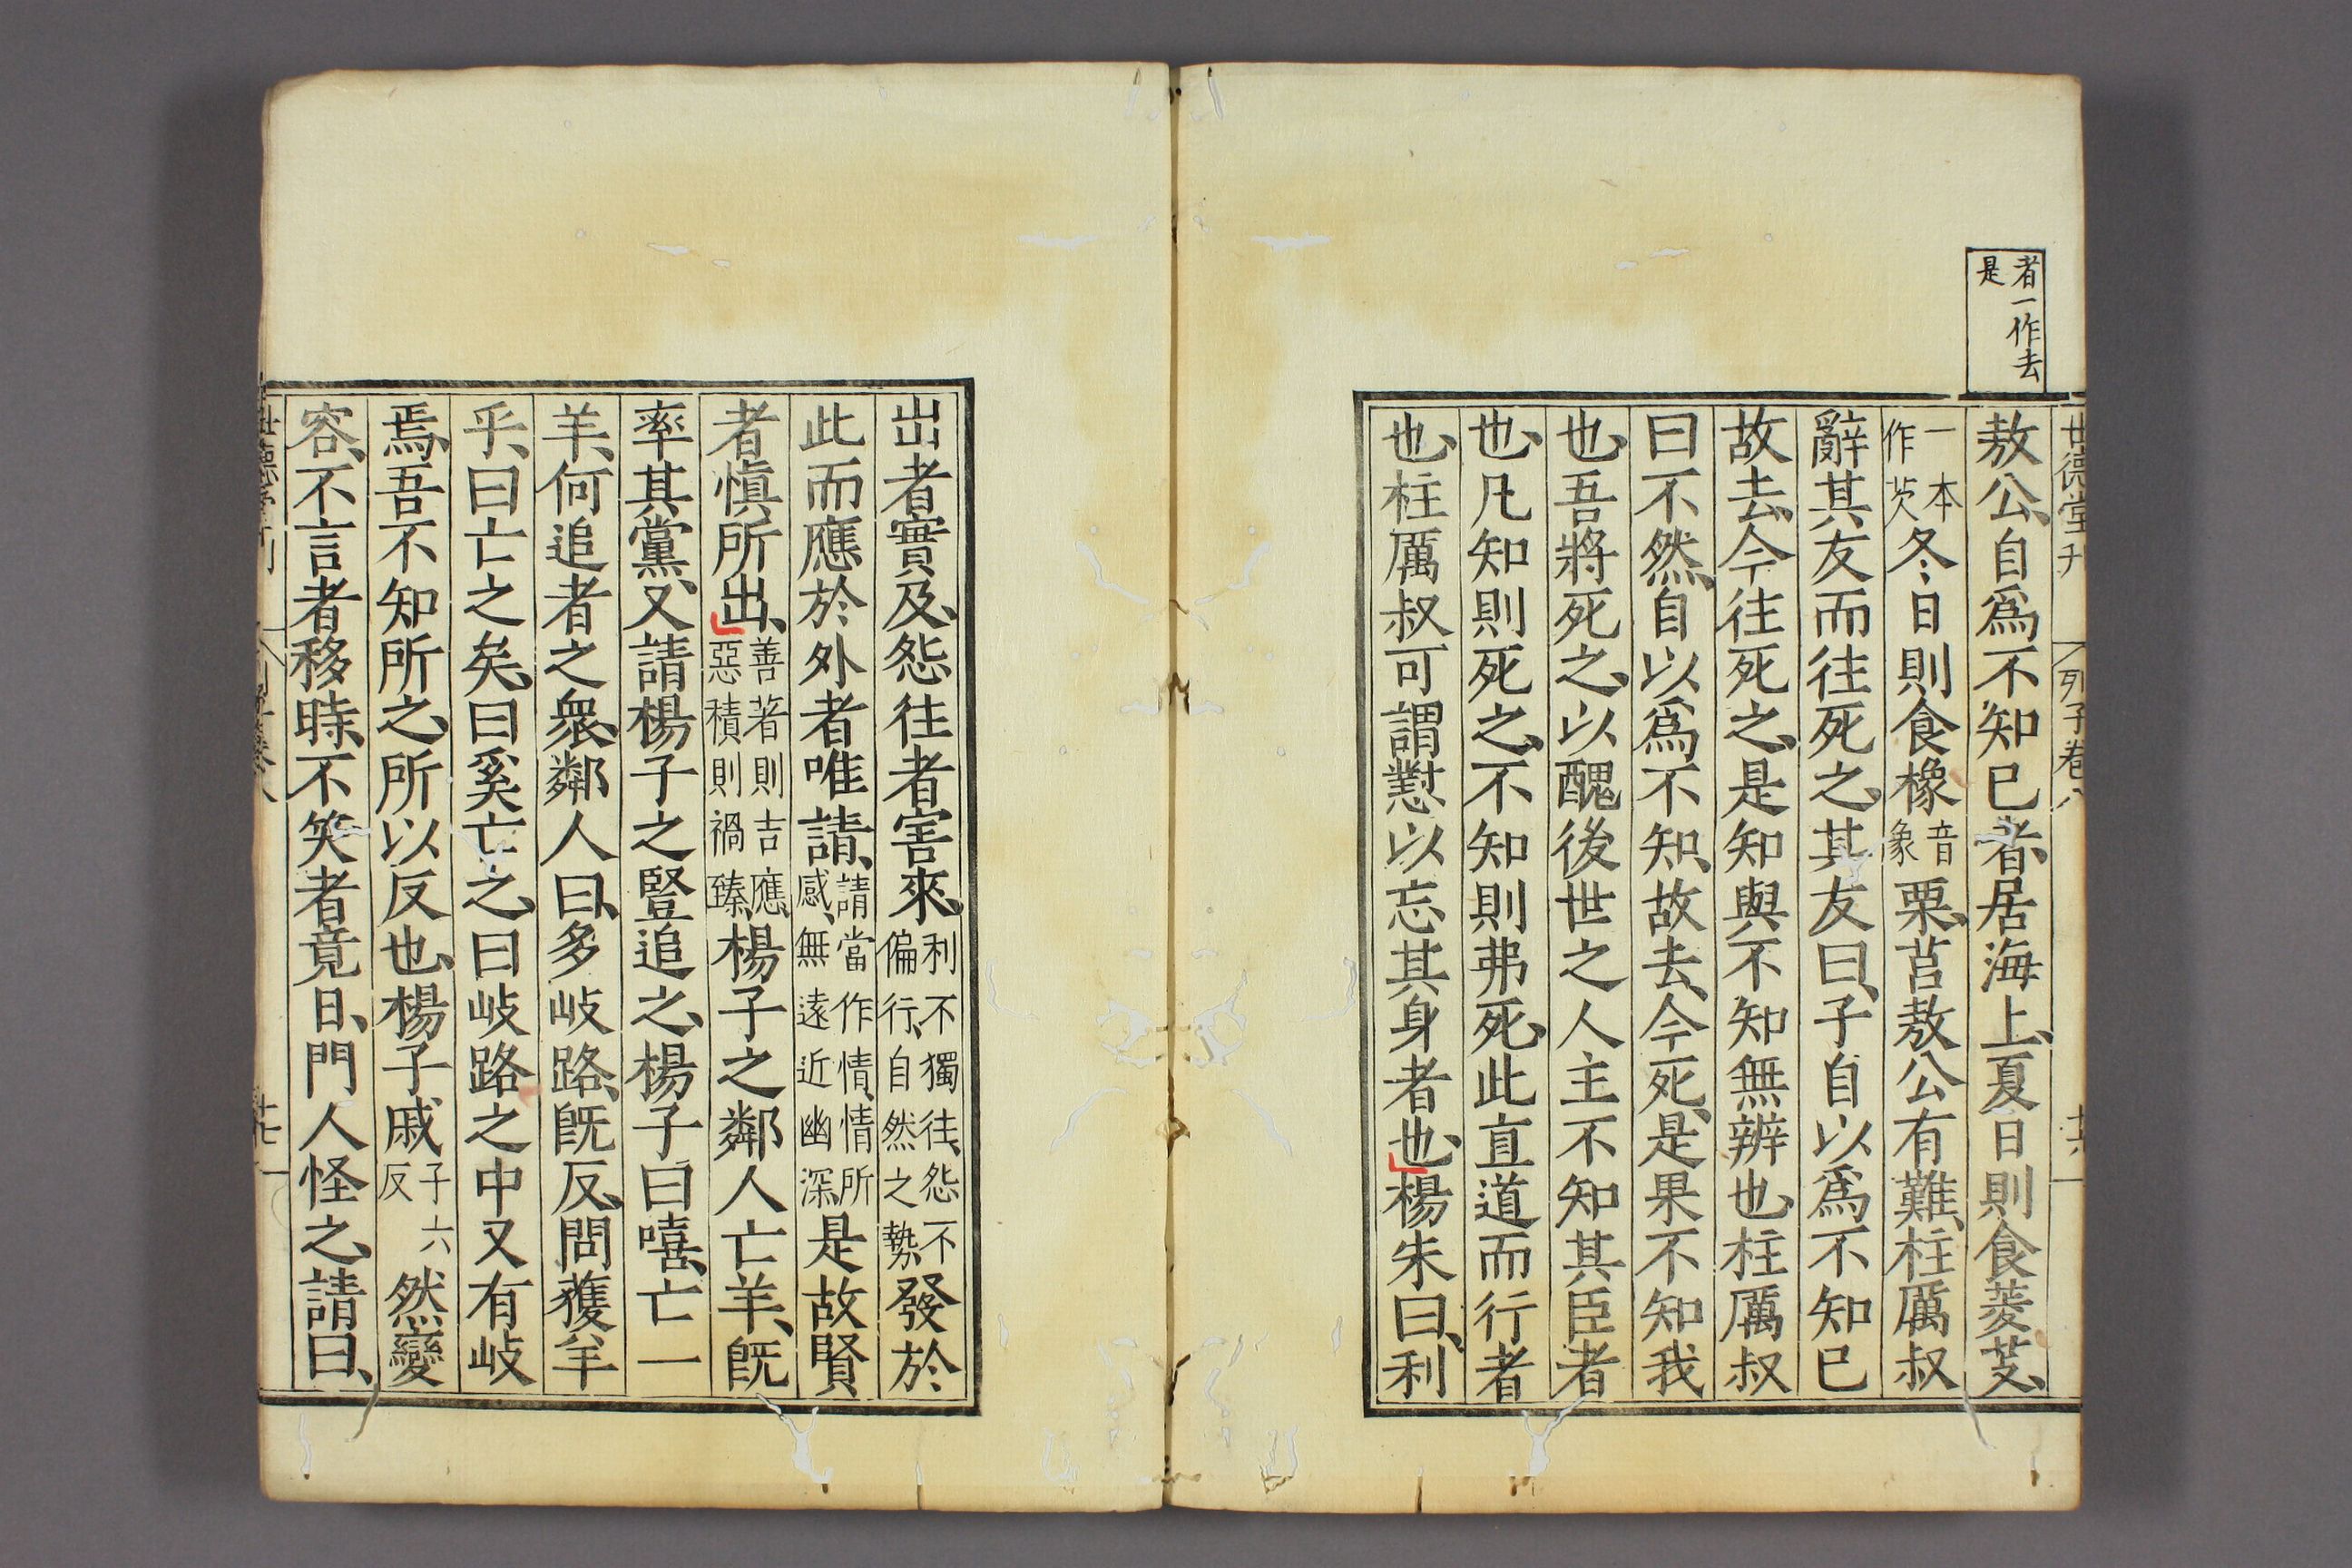 者一作去
是
世德堂刊 列子卷八 廿六
敖公、自爲不知已者、居海上、夏日則食菱芰、
一本作芡冬日則食橡音象栗、莒敖公有難、柱厲叔
辭其友而往死之、其友曰、子自以爲不知已
故去、今往死之、是知與不知無辨也、柱厲叔
曰不然、自以爲不知、故去、今死、是果不知我
也、吾將死之、以醜後世之人主不知其臣者
也、凡知則死之、不知則弗死、此直道而行者
也、柱厲叔可謂懟以忘其身者也、楊朱曰、利
出者實及、怨往者害來、利不獨往、怨不偏行、自然之勢、發於
此而應於外者唯請、請當作情、情所感、無遠近幽深、是故賢
者愼所出、善著則吉應、惡積則禍臻、楊子之鄰人亡羊、旣
率其黨、又請楊子之豎追之、楊子曰嘻、亡一
羊、何追者之衆、鄰人曰、多岐路、旣反、問獲羊
乎、曰亡之矣、曰奚亡之、曰岐路之中又有岐
焉、吾不知所之、所以反也、楊子戚子六反然變
容、不言者移時、不笑者竟日、門人怪之、請曰、